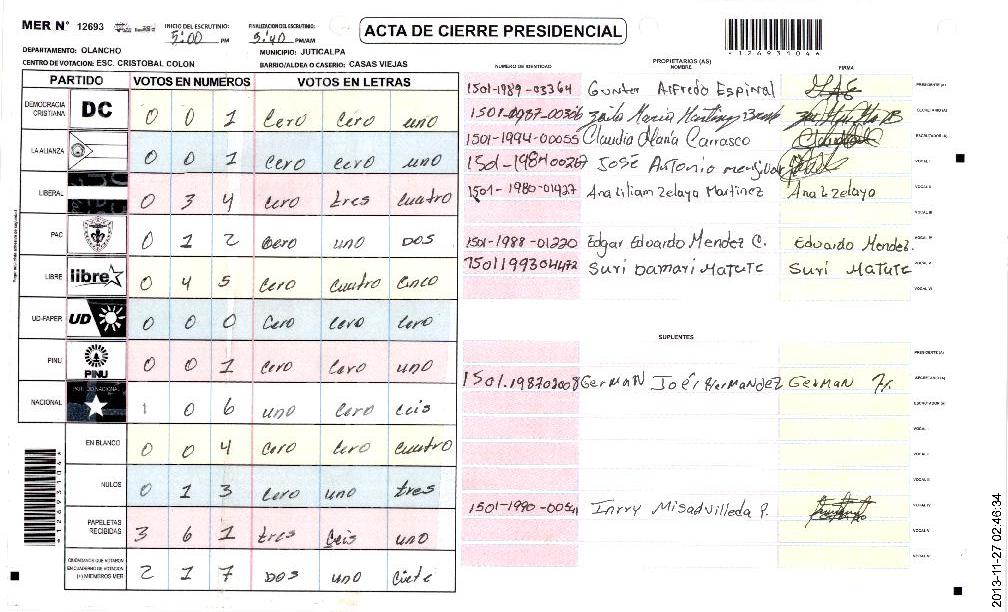 MER N° 12693
INICIO DEL ESCRUTINIO: 5:00 PM
FINALIZACION DEL ESCRUTINIO: 5:40 PM/AM
ACTA DE CIERRE PRESIDENCIAL
*12693104*
DEPARTAMENTO: OLANCHO
MUNICIPIO: JUTICALPA
CENTRO DE VOTACION: ESC. CRISTOBAL COLON
BARRIO/ALDEA O CASERIO: CASAS VIEJAS
PARTIDO VOTOS EN NUMEROS VOTOS EN LETRAS
DEMOCRACIA CRISTIANA DC 0 0 1 Cero Cero uno
LA ALIANZA 0 0 1 Cero Cero uno
LIBERAL 0 3 4 Cero tres cuatro
PAC 0 1 2 Cero uno DOS
LIBRE libre 0 4 5 Cero Cuatro Cinco
UD-FAPER UD 0 0 0 Cero Cero Cero
PINU PINU 0 0 1 Cero Cero uno
NACIONAL 1 0 6 uno Cero Ceis
EN BLANCO 0 0 4 Cero Cero cuatro
NULOS 0 1 3 Cero uno tres
PAPELETAS RECIBIDAS 3 6 1 tres Ceis uno
CIUDADANOS QUE VOTARON EN CUADERNO DE VOTACION (+) MIEMBROS MER 2 1 7 DOS uno Ciete
*12693104*
PROPIETARIOS (AS)
NUMERO DE IDENTIDAD NOMBRE FIRMA
1501-1989-03364 Gunter Alfredo Espinal PRESIDENTE (A)
1501-0987-00306 Maria Martinez SECRETARIO (A)
1501-1994-00055 Claudia María Carrasco ESCRUTADOR (A)
1501-1984 00267 José Antonio VOCAL I
1501-1980-01427 Ana Liliam Zelaya Martinez Ana L Zelaya VOCAL II
VOCAL III
1501-1988-01220 Edgar Eduardo Mendez C. Eduardo Mendez. VOCAL IV
1501199304472 Suri Damari Matute Suri Matute VOCAL V
VOCAL VI
SUPLENTES
PRESIDENTE (A)
1501.198702008 German Joél Hernandez German SECRETARIO (A)
ESCRUTADOR (A)
VOCAL I
VOCAL II
VOCAL III
1501-1990-0054 Inrry Misad Villeda P. VOCAL IV
VOCAL V
VOCAL VI
2013-11-27 02:46:34